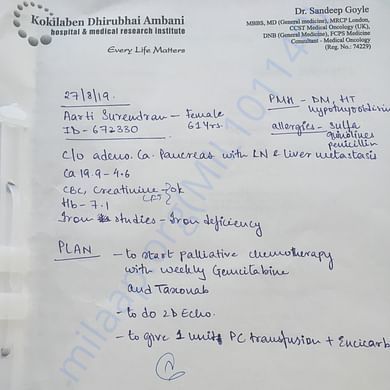 Kokilaben Dhirubhai Ambani
hospital & medical research institute
Every Life Matters
Dr. Sandeep Goyle
MBBS, MD (General medicine), MRCP London,
CCST Medical Oncology (UK),
DNB (General Medicine), FCPS Medicine
Consultant - Medical Oncology
(Reg. No.: 74229)
27/8/19.
Aarti Surendran — Female
61 yrs.
ID - 672330
PMH - DM, HT
hypothyroidism
allergies - Sulfa
quinolines
penicillin
c/o adeno. Ca. Pancreas with LN & liver metastasis
Ca 19.9 - 4.6
CBC, Creatinine - ok
LFT
Hb - 7.1
Iron studies - Iron deficiency
PLAN - to start palliative chemotherapy
with weekly Gemcitabine
and Taxonab
- to do 2D Echo.
- to give 1 unit PC transfusion + Encicarb
milaap.org